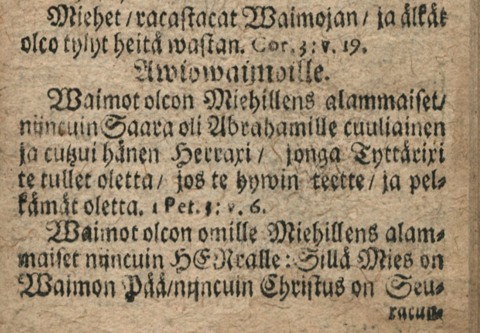 Miehet/racastacat Waimojan/ ja älkät
olco tylyt heitä wastan. Cor. 3: v. 19.
Awiowaimoille.
Waimot olcon Miehillens alammaiset/
nijncuin Saara oli Abrahamille cuuliainen
ja cutzui hänen Herraxi/ jonga Tyttärixi
te tullet oletta/ jos te hywin teette/ ja pel-
kämät oletta. 1 Pet. 3: v. 6.
Waimot olcon omille Miehillens alam-
maiset nijncuin HERralle: Sillä Mies on
Waimon Pää/nijncuin Christus on Seu-
racun-